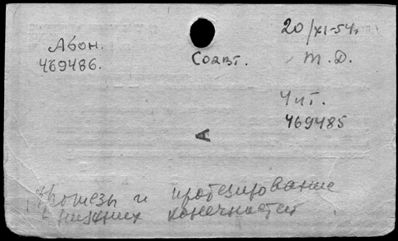 20/XI-54г.
Абон.
469486.
Соавт. т. д.
Чит.
469485
А
Протезы и протезирование
нижних конечностей